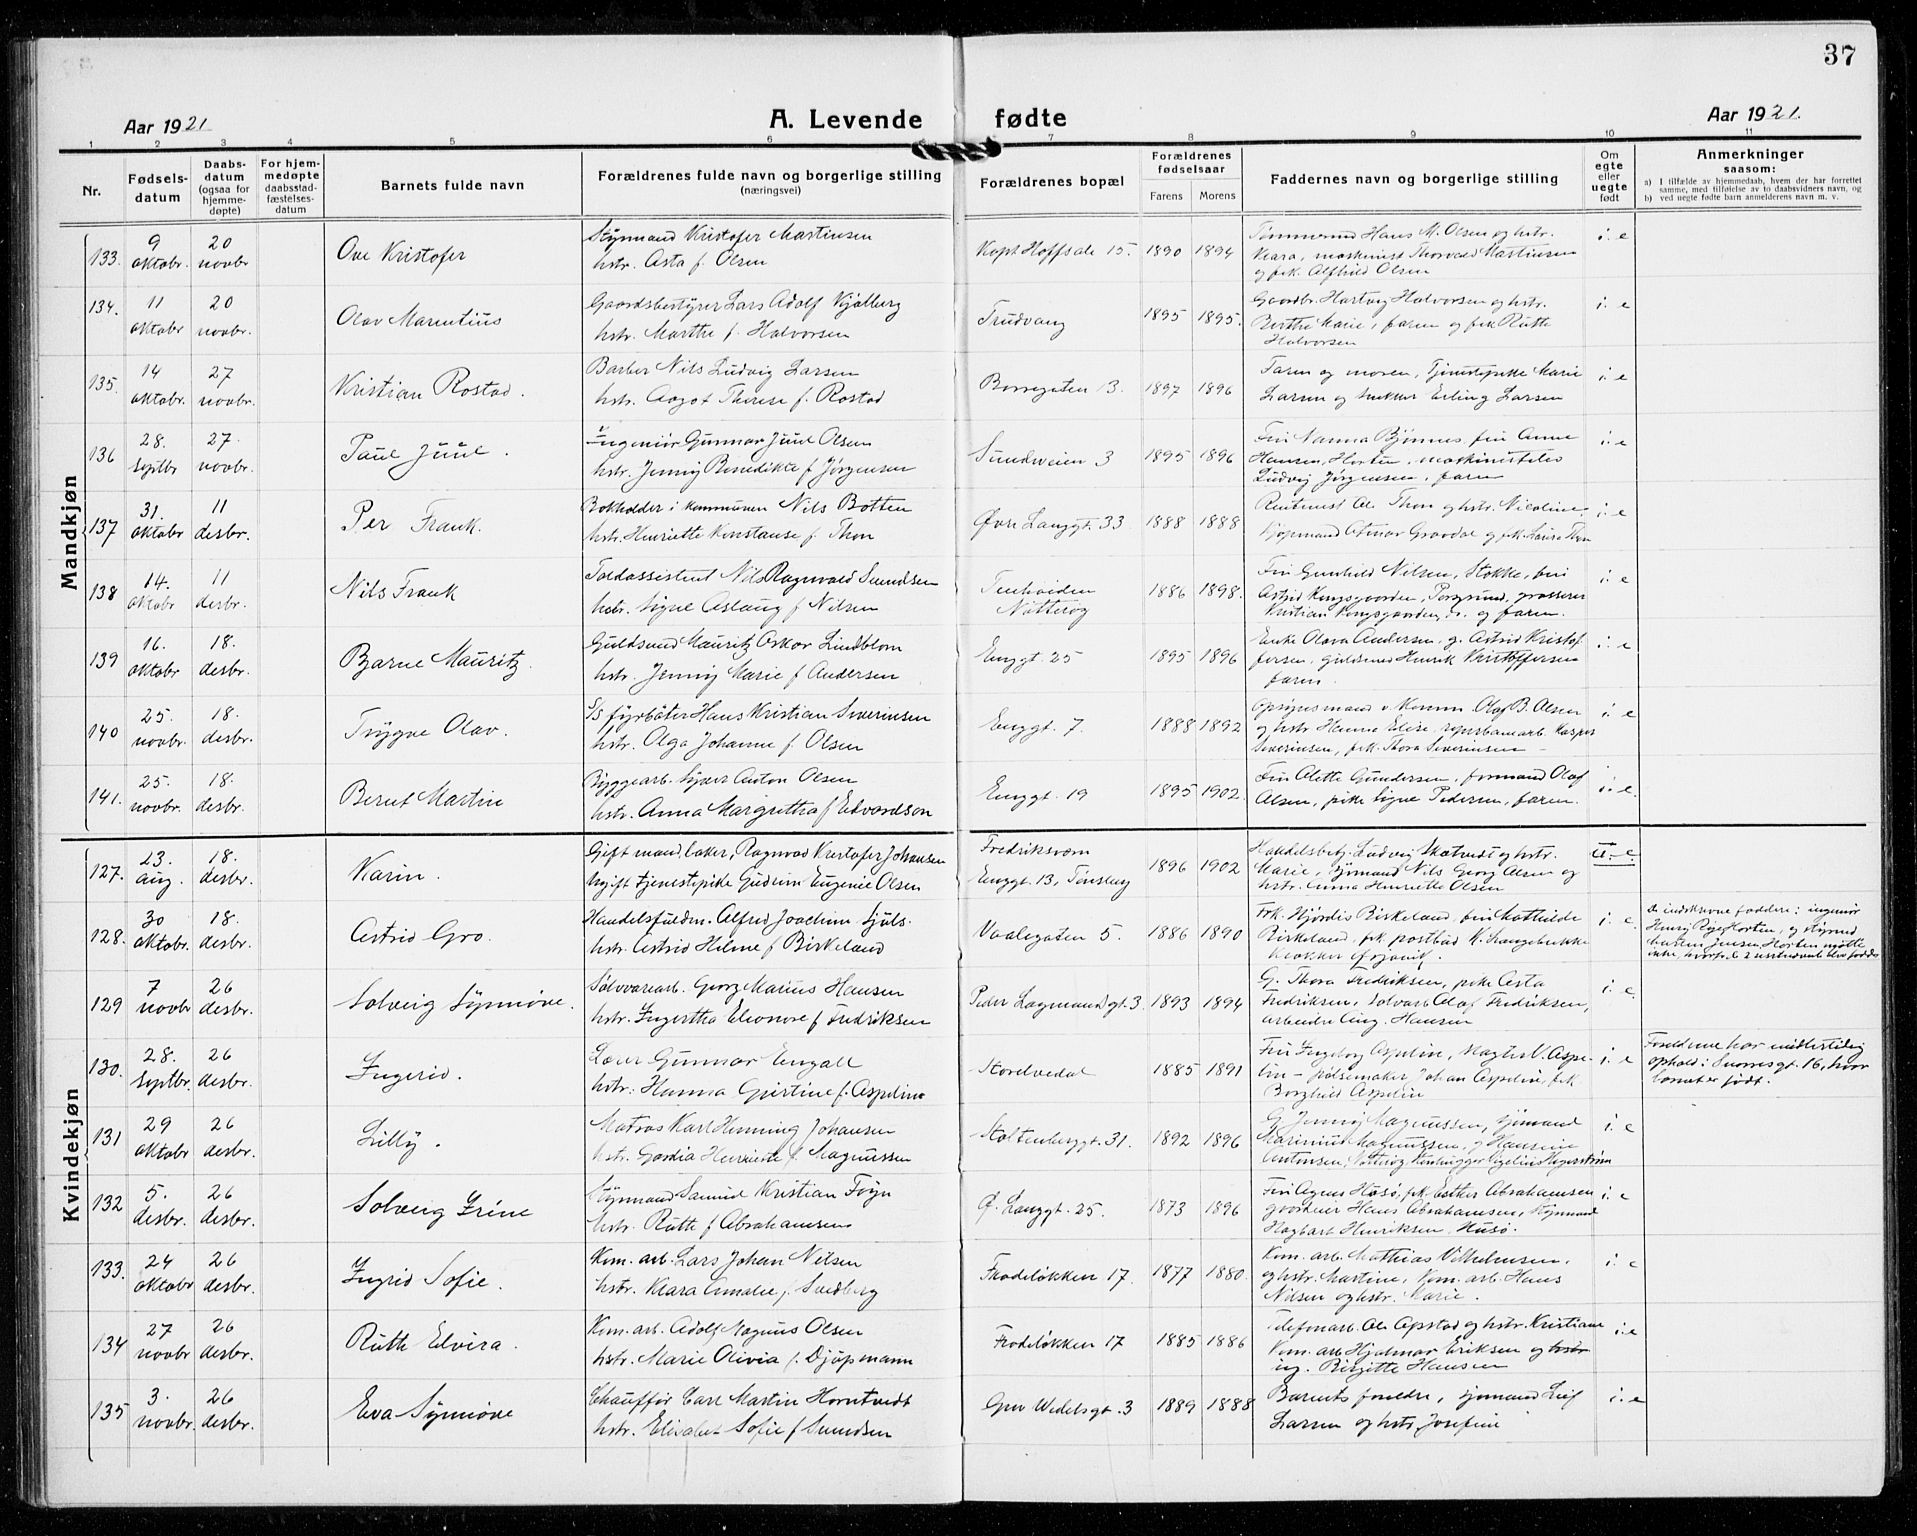 37
Aar 1921
A. Levende fødte
Aar 1921.
1 2 3 4 5 6 7 8 9 10 11
Nr.
Fødsels-
datum
Daabs-
datum
(ogsaa for
hjemme-
døpte)
For hjem-
medøpte
daabsstad-
fæstelses-
datum
Barnets fulde navn
Forældrenes fulde navn og borgerlige stilling
(næringsvei)
Forældrenes bopæl
Forældrenes
fødselsaar
Farens Morens
Faddernes navn og borgerlige stilling
Om
egte
eller
uegte
født
Anmerkninger
saasom:
a) I tilfælde av hjemmedaab, hvem der har forrettet
samme, med tilføielse av to daabsvidners navn, og
b) ved uegte fødte barn anmelderens navn m. v.
Mandkjøn
133. 9 oktobr. 20 novbr. Ove Kristofer
Styrmand Kristofer Martinsen
hstr. Asta f. Olsen
Kapt Hoffsale 15. 1890 1894
Tømmermd Hans M. Olsen og hstr.
Klara, maskinist Thorvald Martinsen
og frk. Alfhild Olsen
i. e
134. 11 oktobr 20 novbr. Olav Marentius
Gaardsbestyrer Lars Adolf Kjølberg
hstr. Marthe f. Halvorsen
Trudvang 1895 1895.
Gaardbr. Hartvig Halvorsen og hstr.
Berthe Marie, faren og frk Ruth
Halvorsen
i. e
135. 14 oktobr. 27 novbr. Kristian Rostad.
Barber Nils Ludvig Larsen
hstr. Aagot Therese f. Rostad
Borregaten 13. 1897 1896
Faren og moren, Tjenestepike Marie
Larsen og snekker Erling Larsen
i. e
136 28. septbr 27. novbr. Paul Juul.
Ingeniør Gunnar Juul Olsen
hstr. Jenny Benedikte f Jørgensen
Sundveien 3 1895 1896
Fru Nanna Bjønnes, fru Anne
Hansen, Horten, maskinistelev
Ludvig Jørgensen, faren
i. e
137 31. oktobr 11 desbr. Per Frank.
Bokholder i kommunen Nils Botten
hstr. Henriette Konstanse f Thon
Øvre Langgt. 33 1888 1888
Rentenist Ole Thon og hstr. Nicoline
Kjøpmand Otmar Graadal og frk. Laura Thon
i. e
138 14. oktobr 11 desbr. Nils Frank
Toldassistent Nils Ragnvald Svendsen
hstr. Signe Aslaug f Nilsen
Tenheiden
Nøtterøy 1886 1898.
Fru Gunhild Nilsen, Stokke, fru
Astrid Kongsgaarden, Porsgrund, grosserer
Kristian Kongsgaarden, s. og faren.
i. e
139 16. oktobr 18. desbr. Bjarne Mauritz.
Guldsmd Mauritz Oskar Lindblom
hstr. Jenny Marie f Andersen
Enggt. 25 1895 1896
Enke Olava Andersen, g. Astrid Kristof
fersen, guldsmed Henrik Kristoffersen
faren.
i. e
140 25. novbr. 18. desbr. Trygve Olav.
S/s fyrbøter Hans Kristian Severinsen
hstr. Olga Johanne f. Olsen
Enggt. 7. 1888 1892
Opsynsmand v. Komm. Olaf B. Olsen
og hstr Hanna Elise, reperbanearb. Kasper
Severinsen, frk. Thora Severinsen
i. e
141. 25. novbr. 18. desbr. Bernt Martin
Byggearb. Syver Anton Olsen
hstr. Anna Margretha f Edvardson
Enggt. 19 1895 1902.
Fru Alette Gundersen, formand Olaf
Olsen, pike Signe Pedersen, faren.
i. e.
Kvindekjøn
127. 23. aug. 18. desbr. Karin.
Gift mand, laker, Ragnvad Kristofer Johansen
Ugift tjenestepike Gudrun Eugenie Olsen
Fredriksvern
Enggt. 13, Tønsberg 1896 1902
Handelsbetj. Ludvig Skatvedt og hstr.
Marie, sjømand Nils Georg Olsen og
hstr. Anna Henriette Olsen
u. e.
128. 30 oktobr. 18. desbr. Astrid Gro.
Handelsfuldm. Alfred Joachim Sjuls.
hstr. Astrid Hilme f Birkeland
Vaalegaten 5. 1886 1890
Frk. Hjørdis Birkeland, fru Mathilde
Birkeland, frk. postbud K. Langebrekke
i. e.
De indskrevne faddere: ingeniør
Henry Rye, Horten, og styrmd
Jensen, Horten møtte
ikke, hvorfor 2 blev fadde
129 7 novbr 26 desbr. Solveig Synnøve.
Sølvvarearb. Georg Marius Hansen
hstr. Ingertha Eleonore f Fredriksen
Peder Lagmandsgt. 3 1893 1894
G. Thora Fredriksen, pike Asta
Fredriksen, Sølvarb Olaf Fredriksen,
arbeider Aug. Hansen
i. e.
130. 28. septbr. 26 desbr. Ingerid.
Lærer Gunnar Engall
hstr: Hanna Gjertine f. Aspelin
Storelvedal 1885 1891
Fru Ingeborg Aspelin, Magter V. Aspe-
lin – pølsemaker Johan Aspelin, frk.
Borghild Aspelin
i. e
Foreldrene har midlertidig
ophold i Snorresgt. 16, hvor
barnet er født.
131 29 oktobr 26 desbr. Lilly.
Matros Karl Henning Johansen
hstr. Gardia Henriette f. Magnussen
Stoltenberggt. 31. 1892 1896
G. Jenny Magnussen, sjømand
Marinius Magnussen, g Hansine
Antonsen, Nøtterøy, Stenhugger
i. e
132 5. desbr. 26 desbr. Solveig Irene
Styrmand Samuel Kristian Foyn
hstr. Ruth f Abrahamsen
Ø. Langgt. 25. 1873 1896
Fru Agnes Husø, frk. Esther Abrahamsen
gaardeier Hans Abrahamsen, Styrmand
Hagbart Henriksen, Husø.
i. e
133. 24 oktobr 26 desbr. Ingrid Sofie.
Kom. arb. Lars Johan Nilsen
hstr. Klara Amalie f. Svedberg
Frodeløkken 17. 1877 1880.
Kom. arb. Mathias Vilhelmsen,
og hstr. Martine, Kom. arb. Hans
Nilsen og hstr. Marie.
i. e
134 27 novbr 26 desbr. Ruth Elvira.
Kom. arb. Adolf Magnus Olsen
hstr. Marie Olivia f. Djupmann
Frodeløkken 17 1885 1886
Telefonarb. Ole Opstad og hstr. Kristiane
Kom. arb Hjalmar Eriksen og hstr
ug. Birgitte Hansen
i. e
135 3. novbr. 26 desbr. Eva Synnøve
Chauffør Carl Martin Horntvedt
hstr. Elisabet Sofie f Svendsen
Grev Wedelsgt. 3 1889 1888
Barnets foreldre, sjømand Leif
Larsen og hstr. Josefine
i. e